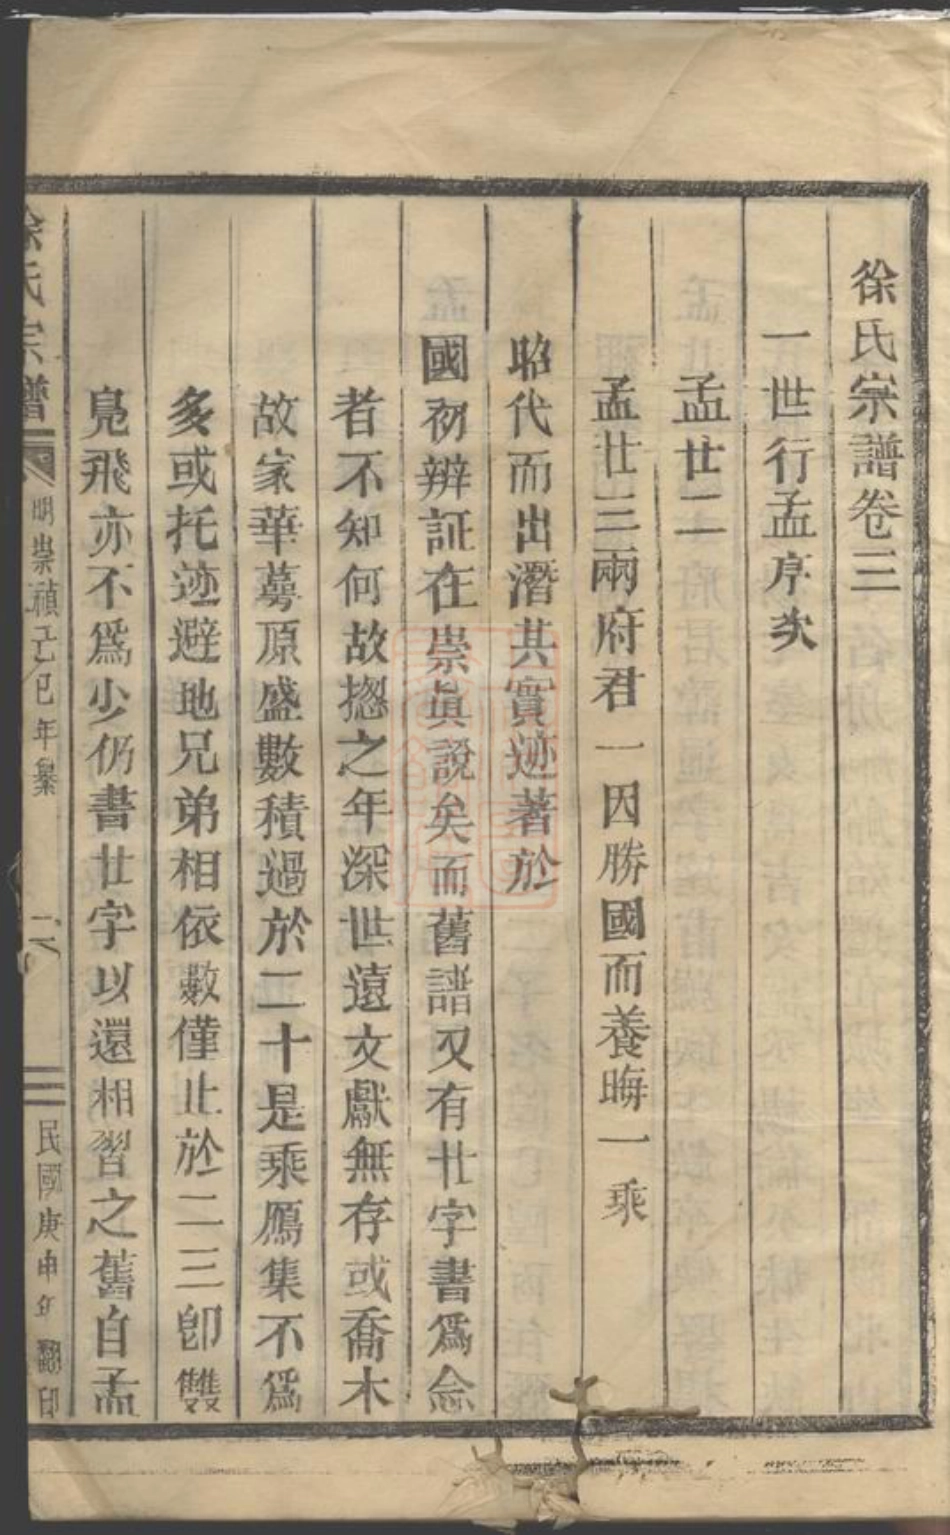 徐氏宗譜卷三
一世行孟序次
孟廿二
孟廿三兩府君一因勝國而養晦一乘
昭代而出潛其實迹著於
國初辨証在崇眞說矣而舊譜又有廿字書爲念
者不知何故揔之年深世遠文獻無存或喬木
故家華蕚原盛數積過於二十是乘鴈集不爲
多或托迹避地兄弟相依數僅止於二三卽雙
鳧飛亦不爲少仍書廿字以還相習之舊自孟
徐氏宗譜
明崇禎己巳年纂
民國庚申年翻印